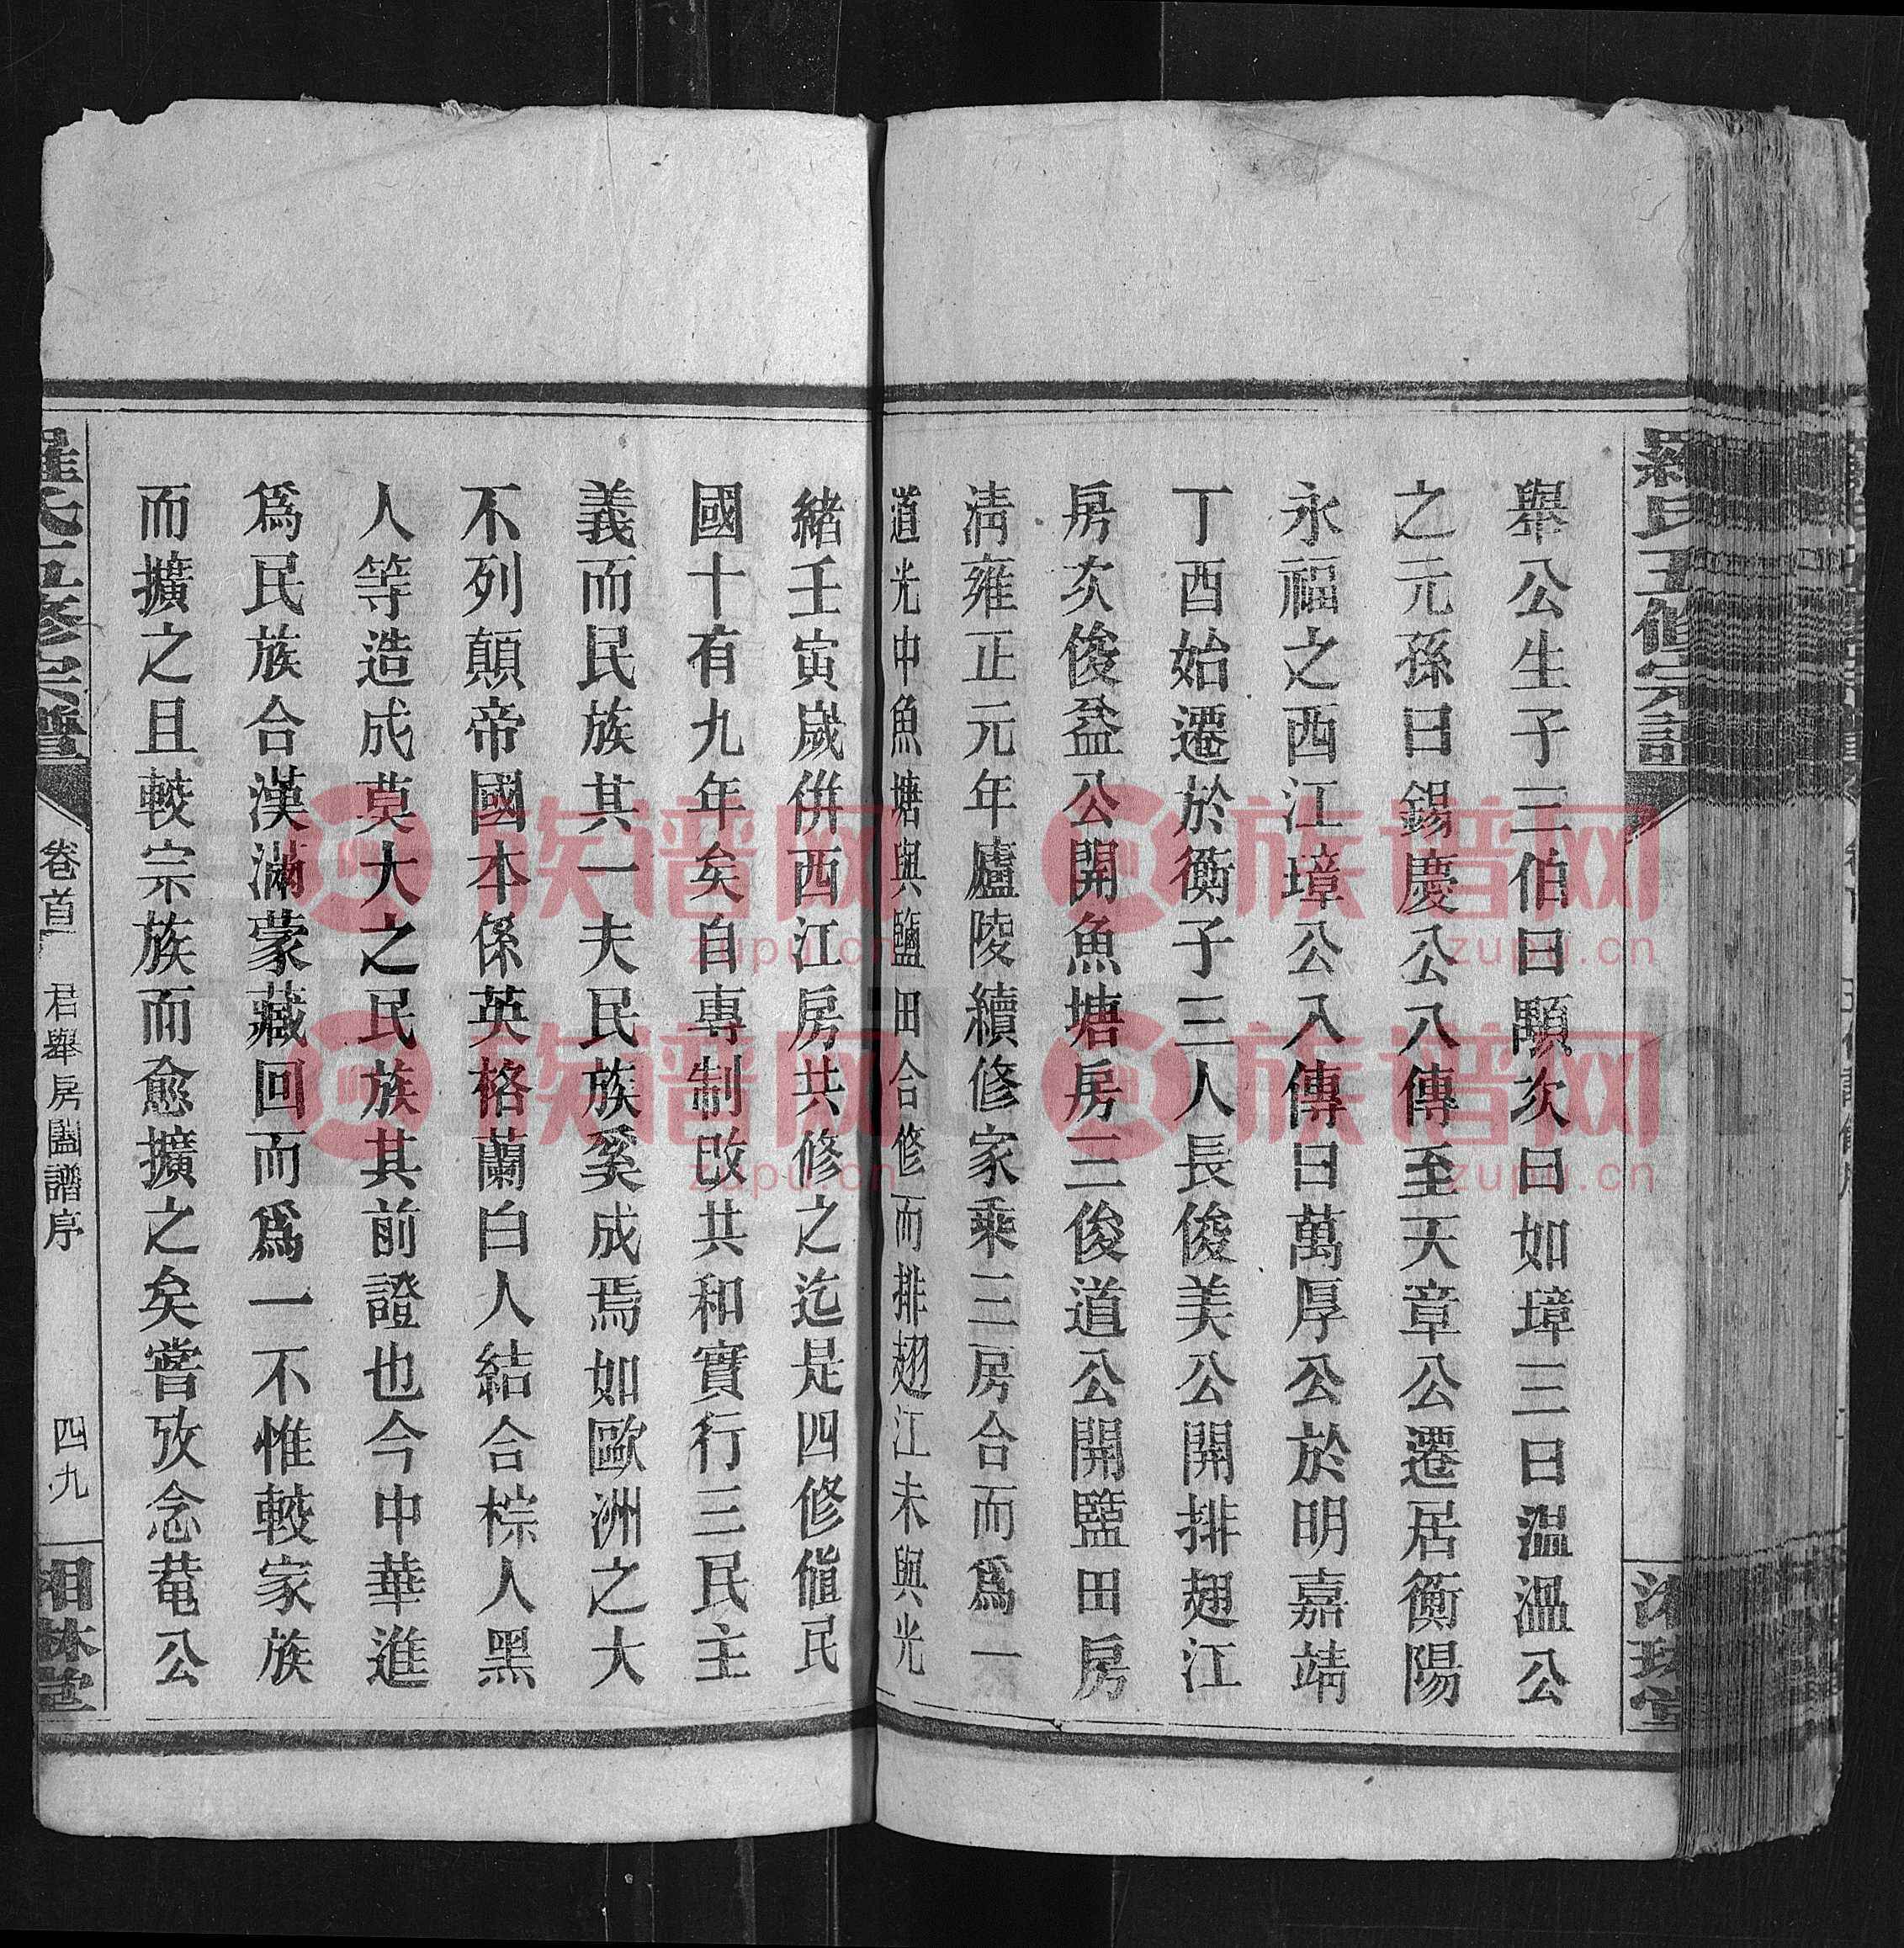 羅氏五修宗譜
舉公生子三伯曰顒次曰如璋三曰溫溫公
之元孫曰錫慶公八傳至天章公遷居衡陽
永福之西江璋公入傳曰萬厚公於明嘉靖
丁酉始遷於衡子三人長俊美公開排翅江
房次俊益公開魚塘房三俊道公開鹽田房
清雍正元年廬陵續修家乘三房合而爲一
道光中魚塘與鹽田合修而排翅江未與光
緒壬寅歲併西江房共修之迄是四修値民
國十有九年矣自專制改共和實行三民主
義而民族其一夫民族奚成焉如歐洲之大
不列顛帝國本係英格蘭白人結合棕人黑
人等造成莫大之民族其前證也今中華進
爲民族合漢滿蒙藏回而爲一不惟較家族
而擴之且較宗族而愈擴之矣嘗攷念菴公
羅氏五修宗譜
卷首
君舉房闔譜序
四九
相林堂
族谱网
zupu.cn
族谱网
zupu.cn
族谱网
zupu.cn
族谱网
zupu.cn